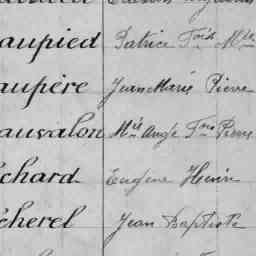 aupied Patrice Fois Mie
aupère Jean Marie Pierre
auvalon Mie Ange Fois Pierre
chard Eugène Henri
cherel Jean Baptiste